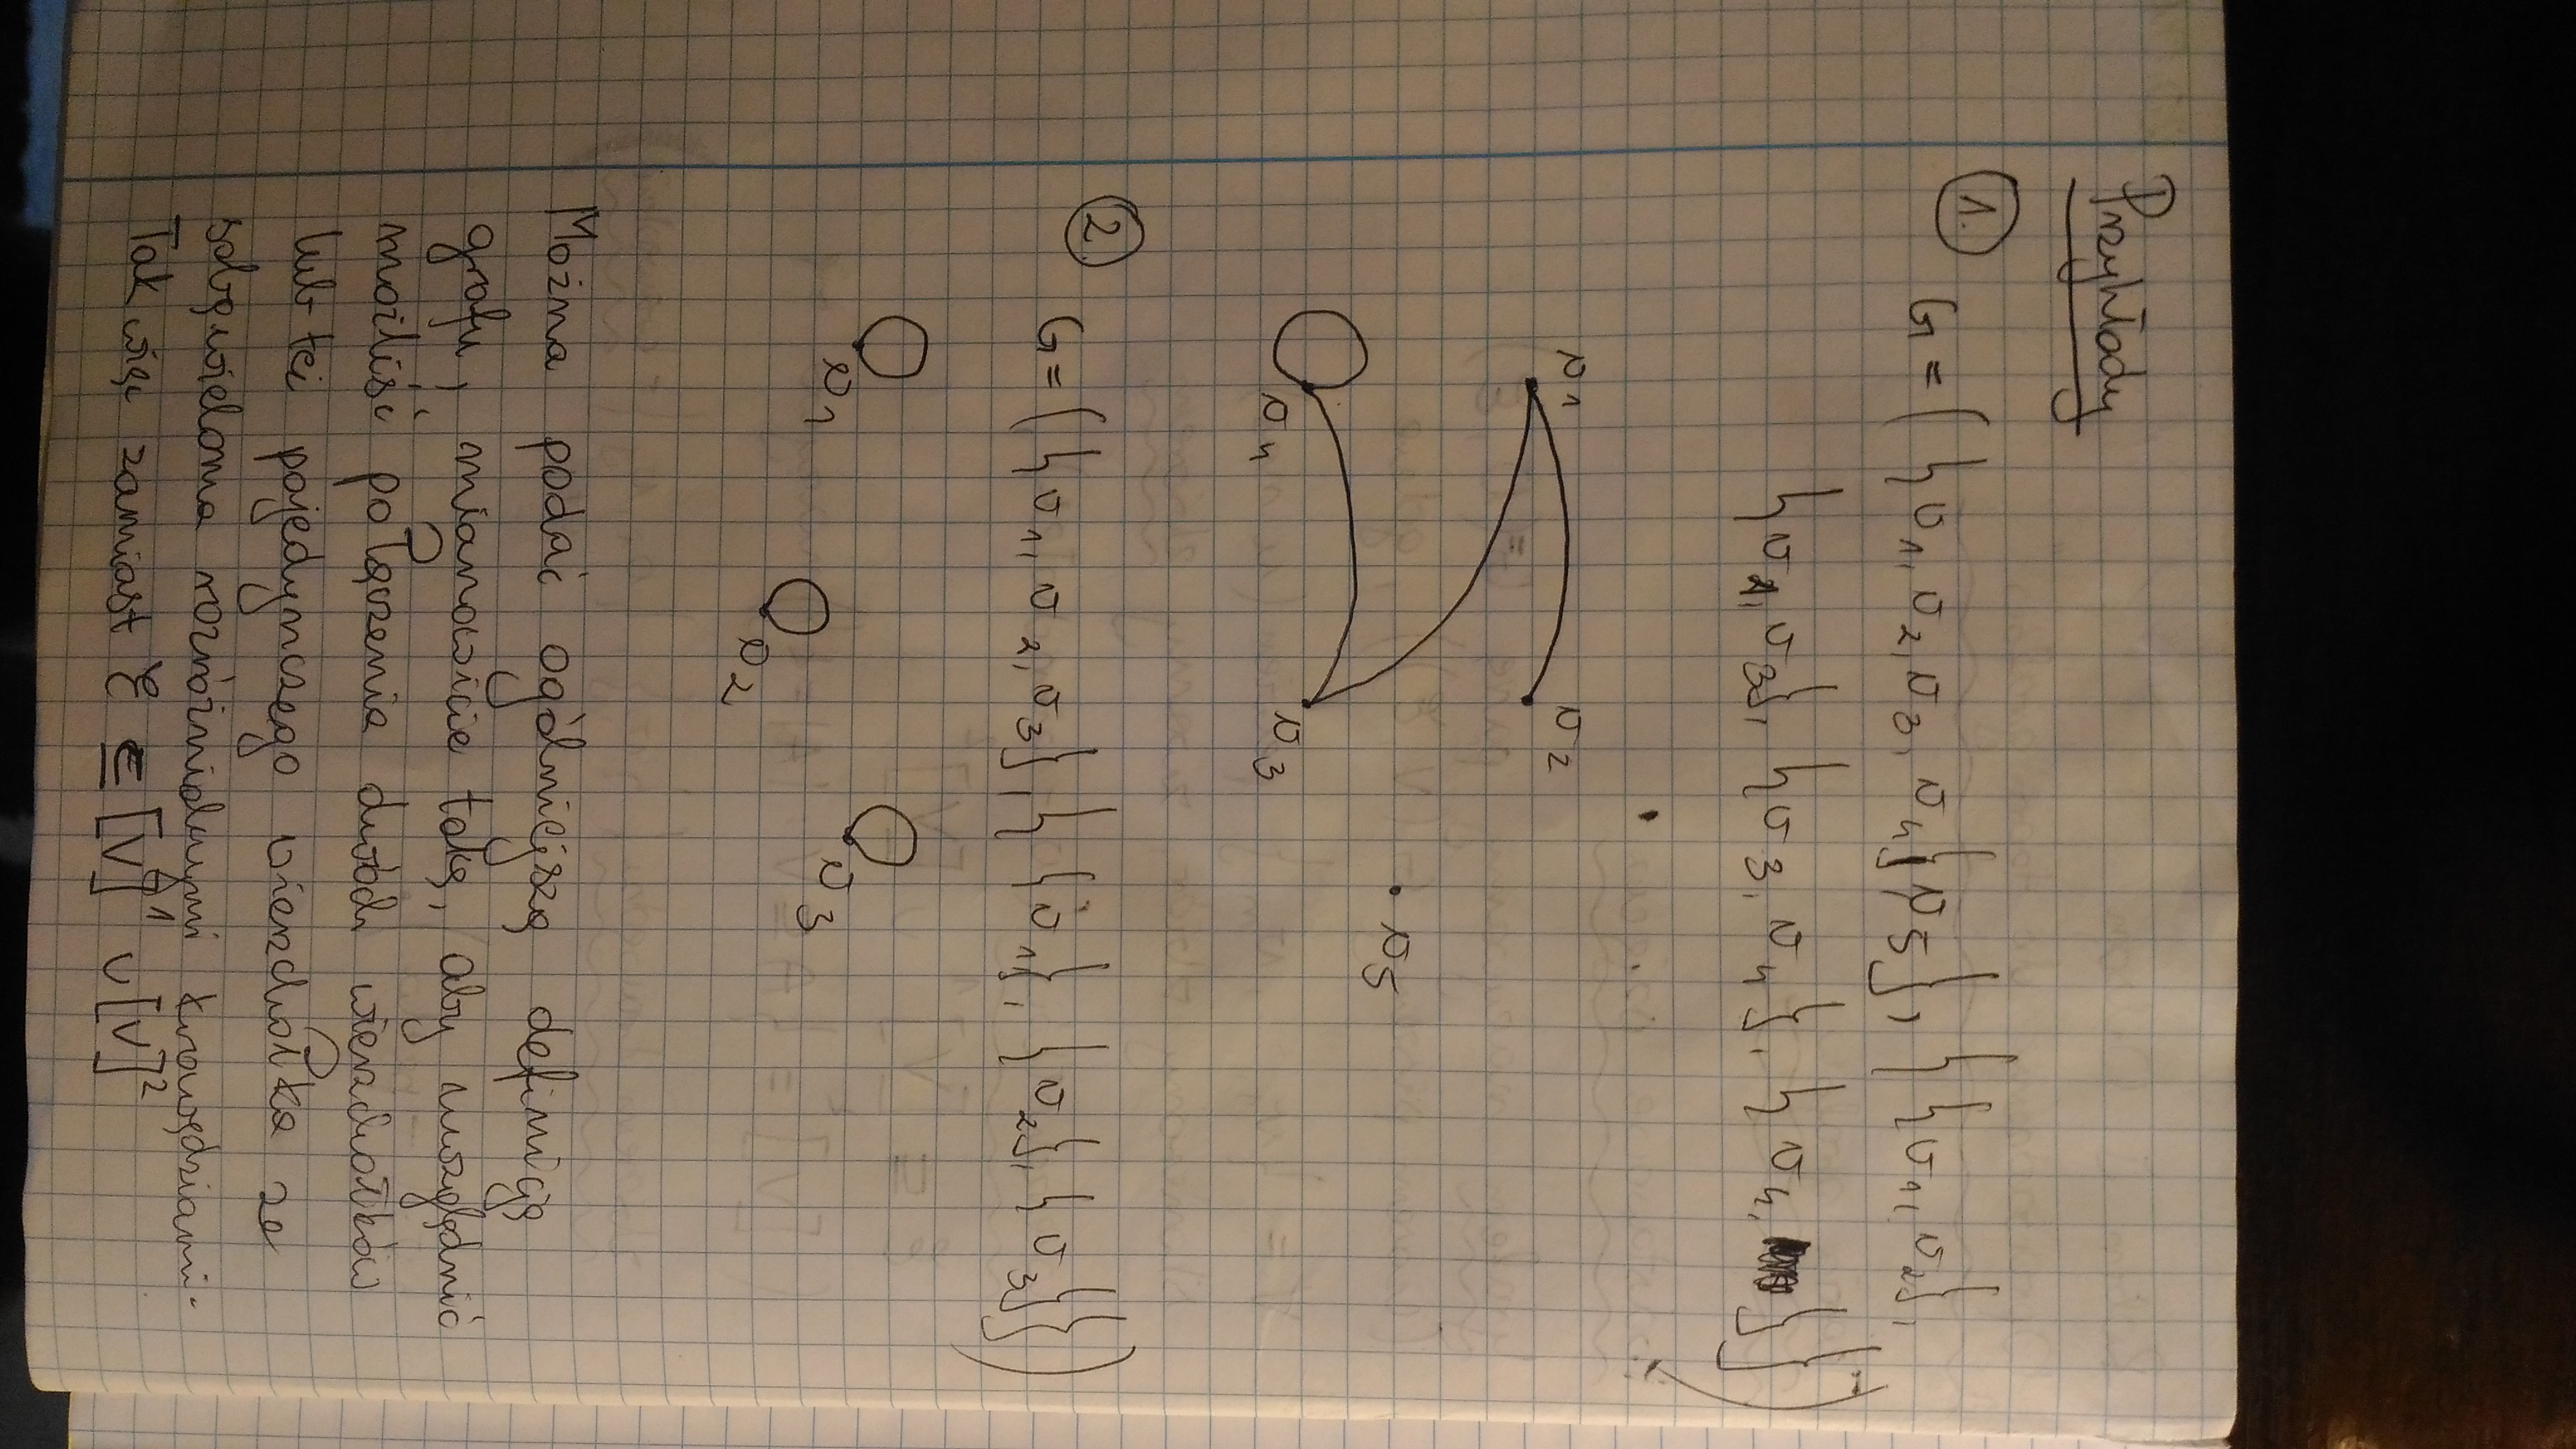 Przykłady
1.
G = ( { v1, v2, v3, v4, v5 }, { { v1, v2 },
{ v1, v3 }, { v3, v4 }, { v4, } } )
v1 v2
v5
v4 v3
2.
G = ( { v1, v2, v3 }, { { v1 }, { v2 }, { v3 } } )
v1
v3
v2
Można podać ogólniejszą definicję
grafu, mianowicie taką, aby uwzględnić
możliść połączenia dwóch wierzchołków
lub też pojedynczego wierzchołka ze
sobą wieloma rozróżnialnymi krawędziami.
Tak więc zamiast ℰ ⊆ [V]¹ ∪ [V]²